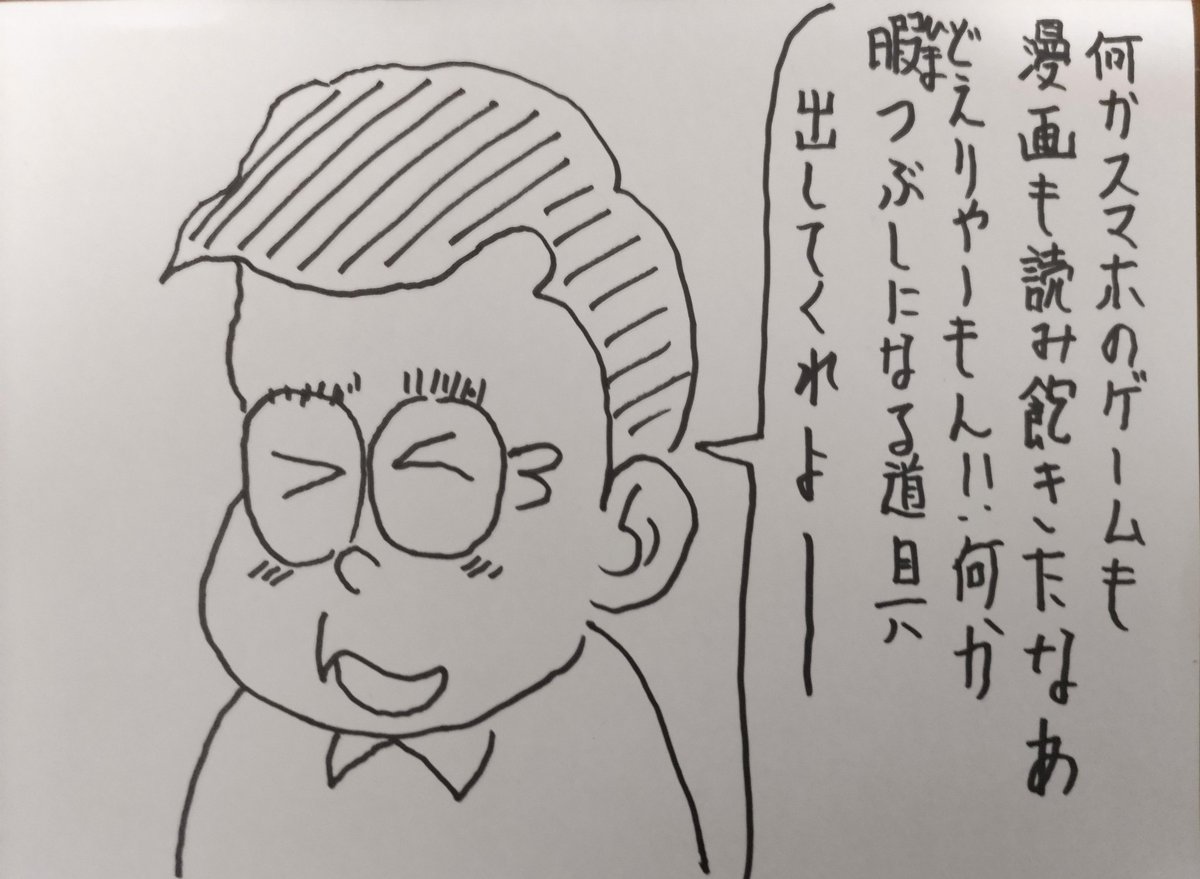 何かスマホのゲームも
漫画も読み飽きたなぁ
どえりゃーもん!!何か
暇つぶしになる道具
ひま
出してくれよー